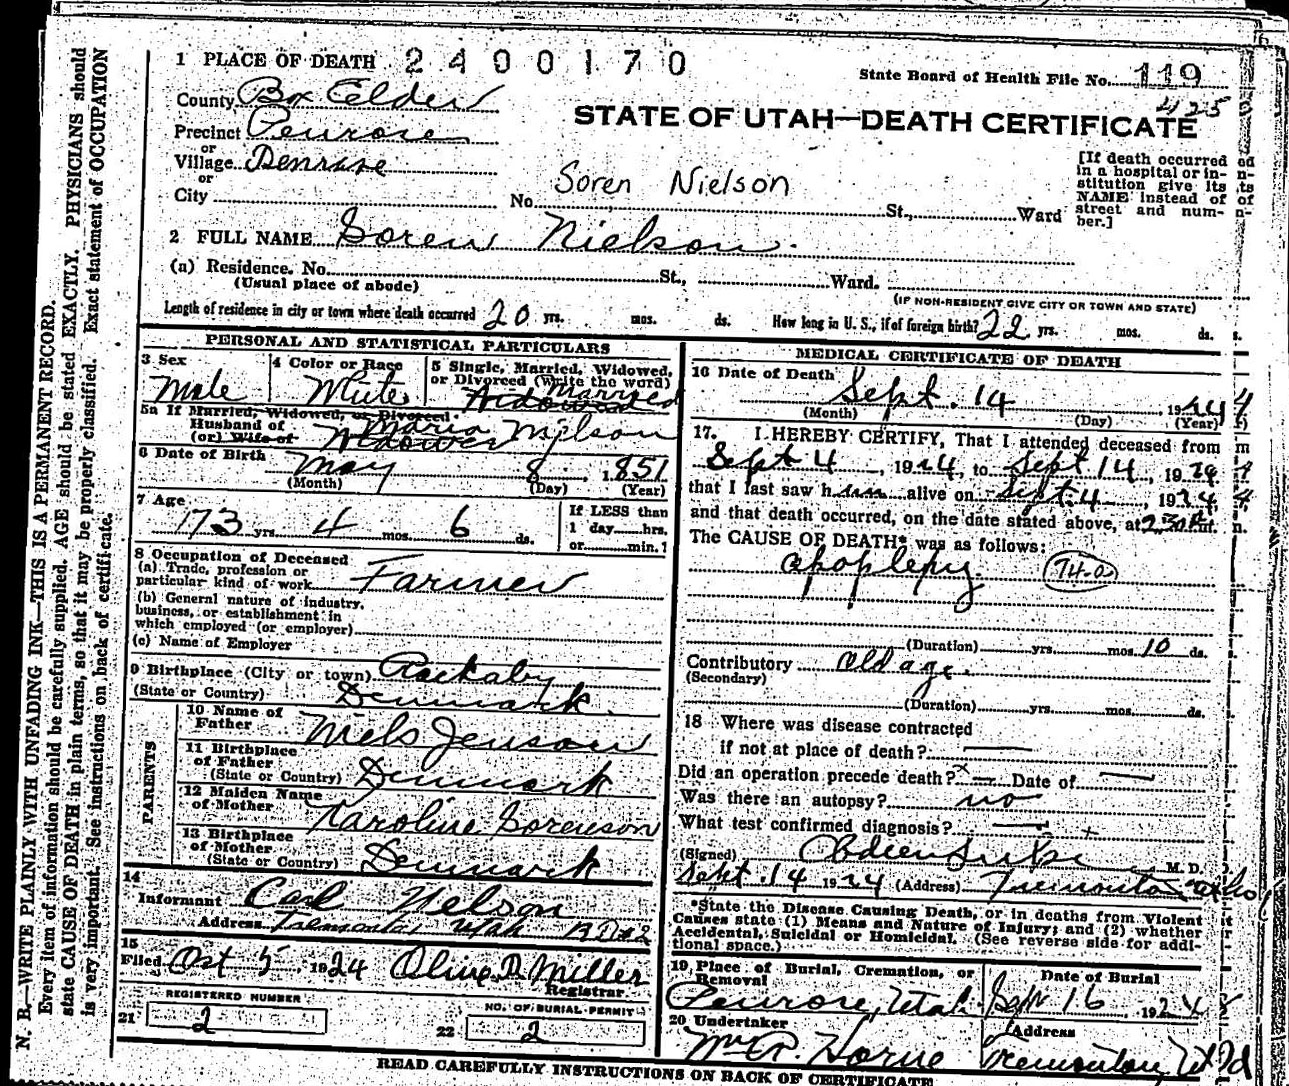 1 PLACE OF DEATH 2400170
State Board of Health File No. 119
425
County Box Elder
STATE OF UTAH—DEATH CERTIFICATE
Precinct Penrose
or
Village Penrose
or
City No. St., Ward
Soren Nielson
[If death occurred
in a hospital or in-
stitution give its
NAME instead of
street and num-
ber.]
2 FULL NAME Soren Nielson.
(a) Residence. No. St., Ward.
(Usual place of abode)
(IF NON-RESIDENT GIVE CITY OR TOWN AND STATE)
Length of residence in city or town where death occurred 20 yrs. mos. ds. How long in U. S., if of foreign birth? 22 yrs. mos. ds.
PERSONAL AND STATISTICAL PARTICULARS
3 Sex
Male
4 Color or Race
White
5 Single, Married, Widowed,
or Divorced (Write the word)
Married
Widowed
5a If Married, Widowed, or Divorced
Husband of
(or) Wife of
Maria Nielson
Widower
6 Date of Birth
May 8, 1851
(Month) (Day) (Year)
7 Age
73 yrs. 4 mos. 6 ds.
If LESS than
1 day hrs.
or min.?
8 Occupation of Deceased
(a) Trade, profession or
particular kind of work Farmer
(b) General nature of industry,
business, or establishment in
which employed (or employer)
(c) Name of Employer
9 Birthplace (City or town)
(State or Country) Denmark.
PARENTS
10 Name of
Father Niels Jenson
11 Birthplace
of Father
(State or Country) Denmark
12 Maiden Name
of Mother Karoline Sorenson
13 Birthplace
of Mother
(State or Country) Denmark
14
Informant Carl Nelson
Address Tremonton Utah RD#2
15
Filed Oct 5, 1924 Olive D. Miller
Registrar
REGISTERED NUMBER
21 2
NO. OF BURIAL PERMIT
22 2
MEDICAL CERTIFICATE OF DEATH
16 Date of Death
Sept. 14 1924
(Month) (Day) (Year)
17. I HEREBY CERTIFY, That I attended deceased from
Sept 4, 1924, to Sept 14, 1924
that I last saw him alive on Sept. 4, 1924
and that death occurred, on the date stated above, at 2 30 P.m.
The CAUSE OF DEATH* was as follows:
apoplexy 74-a
(Duration) yrs. mos. 10 ds.
Contributory old age.
(Secondary)
(Duration) yrs. mos. ds.
18 Where was disease contracted
if not at place of death? —
Did an operation precede death? — Date of —
Was there an autopsy? no
What test confirmed diagnosis? —
(Signed) M. D.
Sept. 14 1924 (Address) Tremonton
*State the Disease Causing Death, or in deaths from Violent
Causes state (1) Means and Nature of Injury; and (2) whether
Accidental, Suicidal or Homicidal. (See reverse side for addi-
tional space.)
19 Place of Burial, Cremation, or
Removal
Penrose, Utah
Date of Burial
Sept 16, 1924
20 Undertaker
Wm. P. Horne
Address
Tremonton Ut
READ CAREFULLY INSTRUCTIONS ON BACK OF CERTIFICATE
N. B.—WRITE PLAINLY WITH UNFADING INK—THIS IS A PERMANENT RECORD.
Every item of information should be carefully supplied. AGE should be stated EXACTLY. PHYSICIANS should
state CAUSE OF DEATH in plain terms, so that it may be properly classified. Exact statement of OCCUPATION
is very important. See instructions on back of certificate.